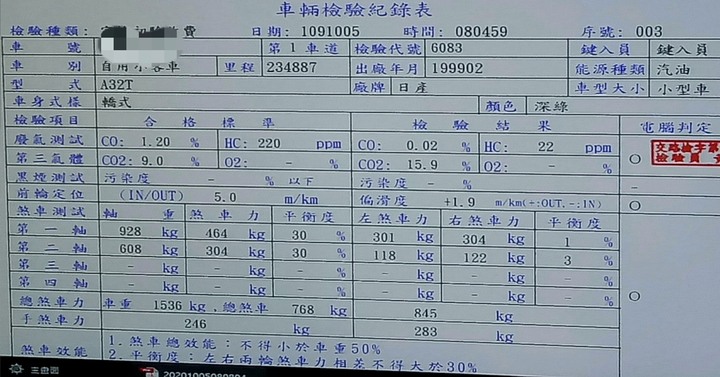 車輛檢驗紀錄表
檢驗種類: 費 日期: 1091005 時間: 080459 序號: 003
車 號 第 1 車道 檢驗代號 6083 鍵入員 鍵入員
車 別 自用小客車 里程 234887 出廠年月 199902 能源種類 汽油
型 式 A32T 廠牌 日產 車型大小 小型車
車身式樣 轎式 顏色 深綠
檢驗項目 合 格 標 準 檢 驗 結 果 電腦判定
廢氣測試 CO: 1.20 % HC: 220 ppm CO: 0.02 % HC: 22 ppm ○ 交路檢字第
第三氣體 CO2: 9.0 % O2: - % CO2: 15.9 % O2: - % 檢驗員
黑煙測試 污染度 - % 以下 污染度 - % -
前輪定位 (IN/OUT) 5.0 m/km 偏滑度 +1.9 m/km(+:OUT,-:IN) ○
煞車測試 軸 重 煞 車 力 平衡度 左煞車力 右煞車力 平衡度
第 一 軸 928 kg 464 kg 30 % 301 kg 304 kg 1 %
第 二 軸 608 kg 304 kg 30 % 118 kg 122 kg 3 %
第 三 軸 - kg - kg - % - kg - kg - %
第 四 軸 - kg - kg - % - kg - kg - % ○
總煞車力 車重 1536 kg ,總煞車 768 kg 845 kg
手煞車力 246 kg 283 kg
煞車效能 1.煞車總效能：不得小於車重50%
2.平衡度：左右兩輪煞車力相差不得大於30%
主畫面 20201005080804